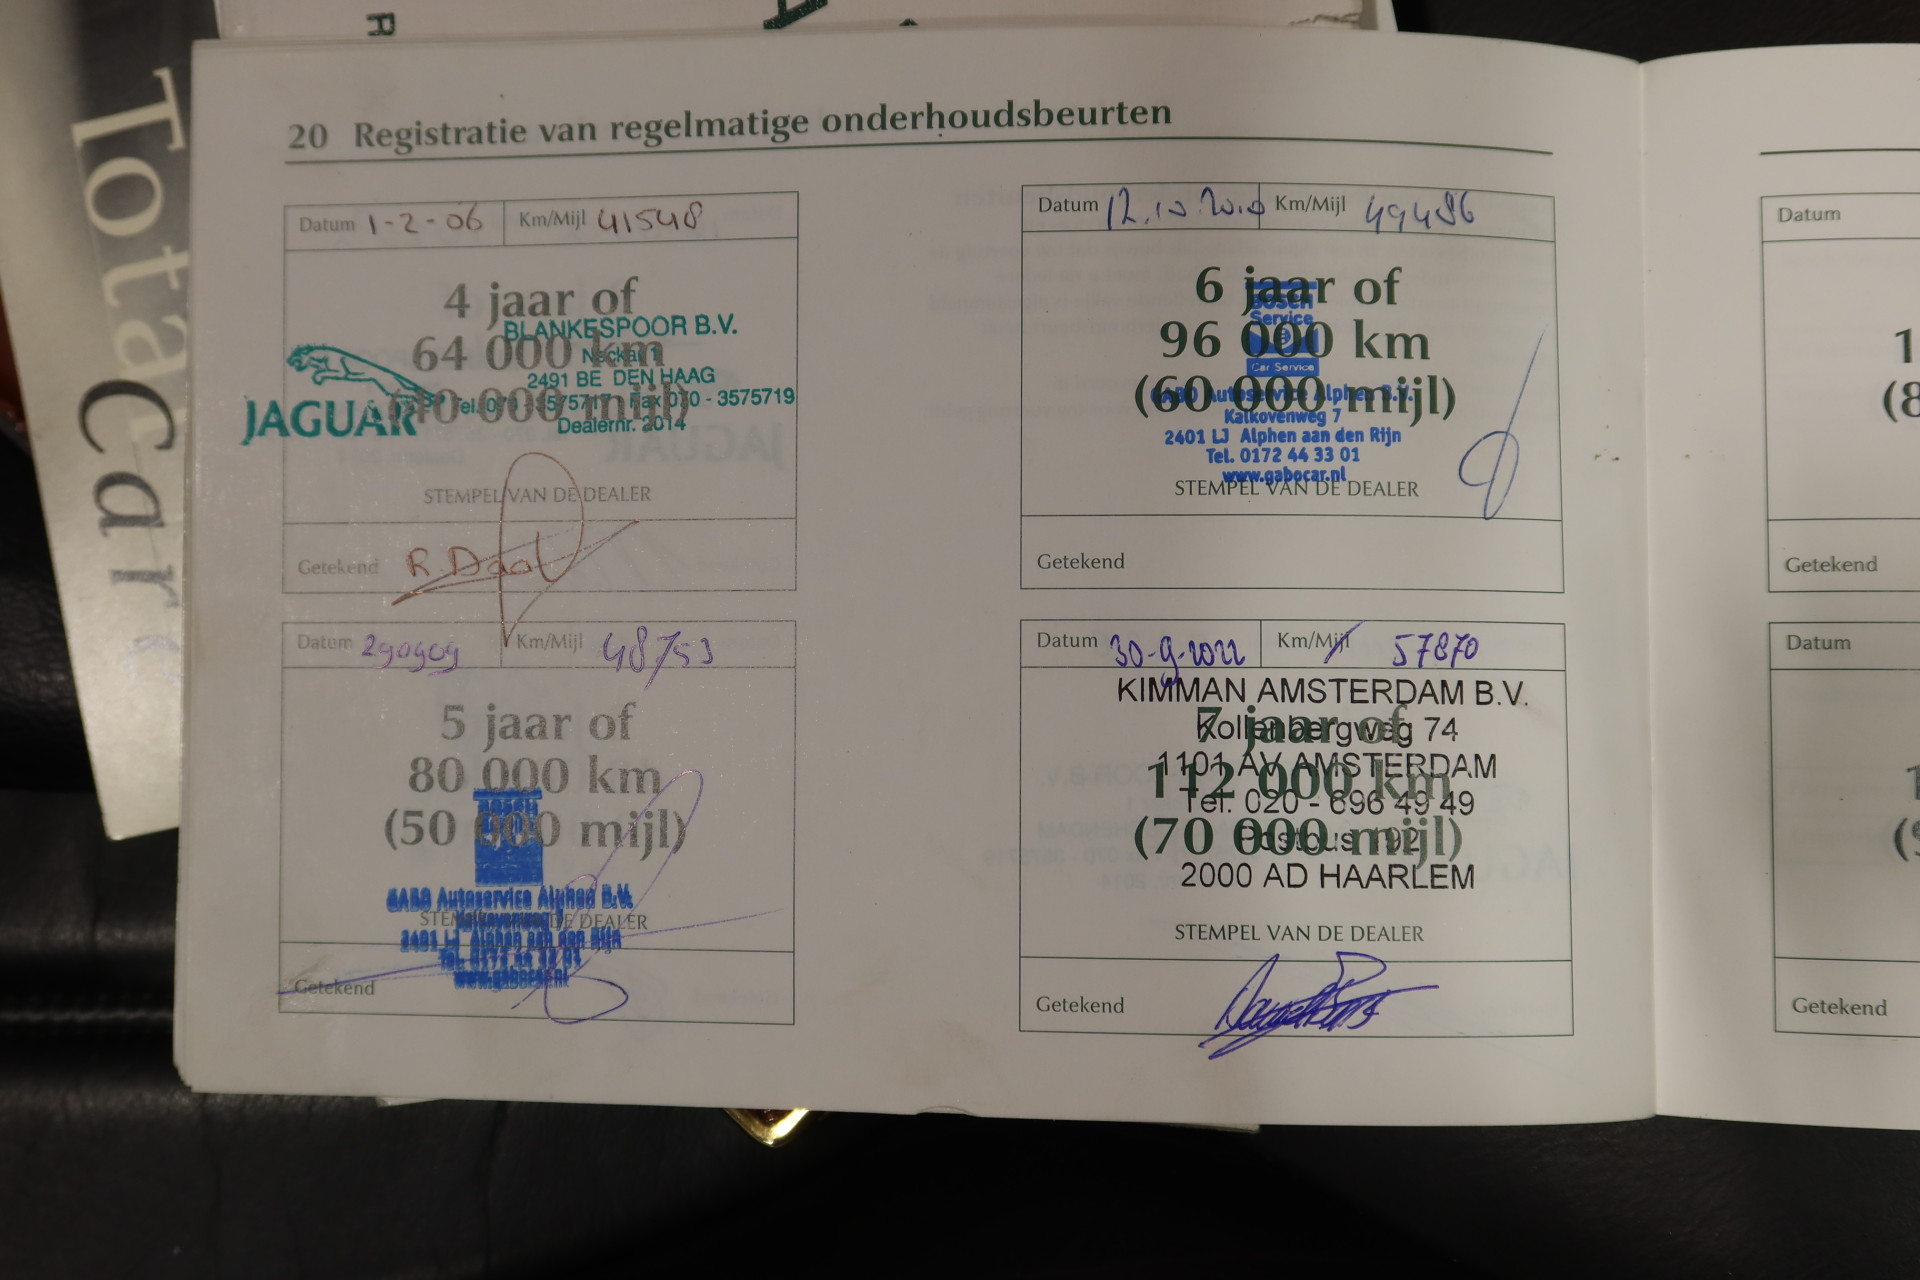 R
Total
Car
20 Registratie van regelmatige onderhoudsbeurten
Datum 1-2-06 Km/Mijl 41548
4 jaar of
64 000 km
(40 000 mijl)
JAGUAR
BLANKESPOOR B.V.
Neckar 1
2491 BE DEN HAAG
Tel. 070 - 3575717 - Fax 070 - 3575719
Dealernr. 2014
STEMPEL VAN DE DEALER
Getekend R. Daal
Datum 290909 Km/Mijl 48753
5 jaar of
80 000 km
(50 000 mijl)
BOSCH
GABO Autoservice Alphen B.V.
Kalkovenweg 7
2401 LJ Alphen aan den Rijn
Tel. 0172 44 33 01
www.gabocar.nl
STEMPEL VAN DE DEALER
Getekend
Datum 12.10.2010 Km/Mijl 49486
6 jaar of
96 000 km
(60 000 mijl)
BOSCH
Service
Car Service
GABO Autoservice Alphen B.V.
Kalkovenweg 7
2401 LJ Alphen aan den Rijn
Tel. 0172 44 33 01
www.gabocar.nl
STEMPEL VAN DE DEALER
Getekend
Datum 30-9-2022 Km/Mijl 57870
7 jaar of
112 000 km
(70 000 mijl)
KIMMAN AMSTERDAM B.V.
Kollenbergweg 74
1101 AV AMSTERDAM
Tel. 020 - 696 49 49
Postbus 192
2000 AD HAARLEM
STEMPEL VAN DE DEALER
Getekend
Datum
1
(8
Getekend
Datum
1
(9
Getekend